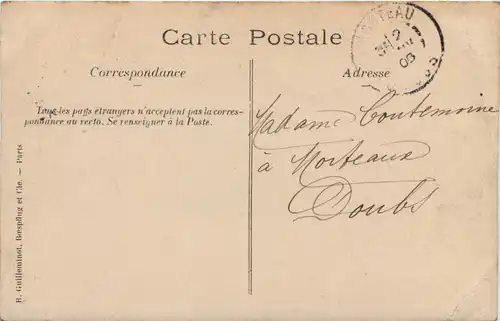 Carte Postale
Correspondance
Tous les pays étrangers n'acceptent pas la corres-
pondance au recto. Se renseigner à la Poste.
B. Guilleminot, Bœspflug et Cie. — Paris
Adresse
Madame Coutemoine
à Morteaux
Doubs